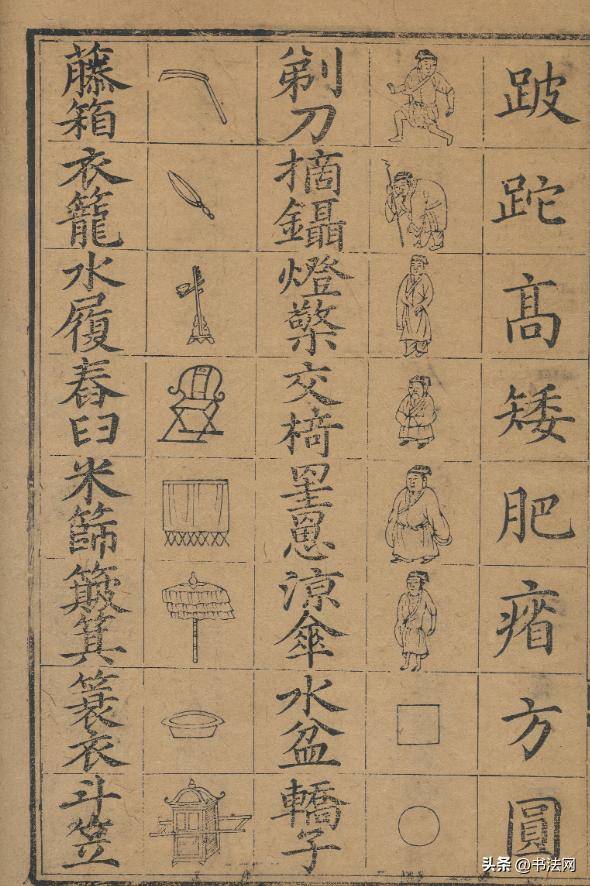 跛跎髙矮肥瘠方圓
剃刀摘鑷燈檠交椅罳涼傘水盆轎子
藤箱衣籠水履舂臼米篩簸箕簑衣斗笠
头条 @书法网